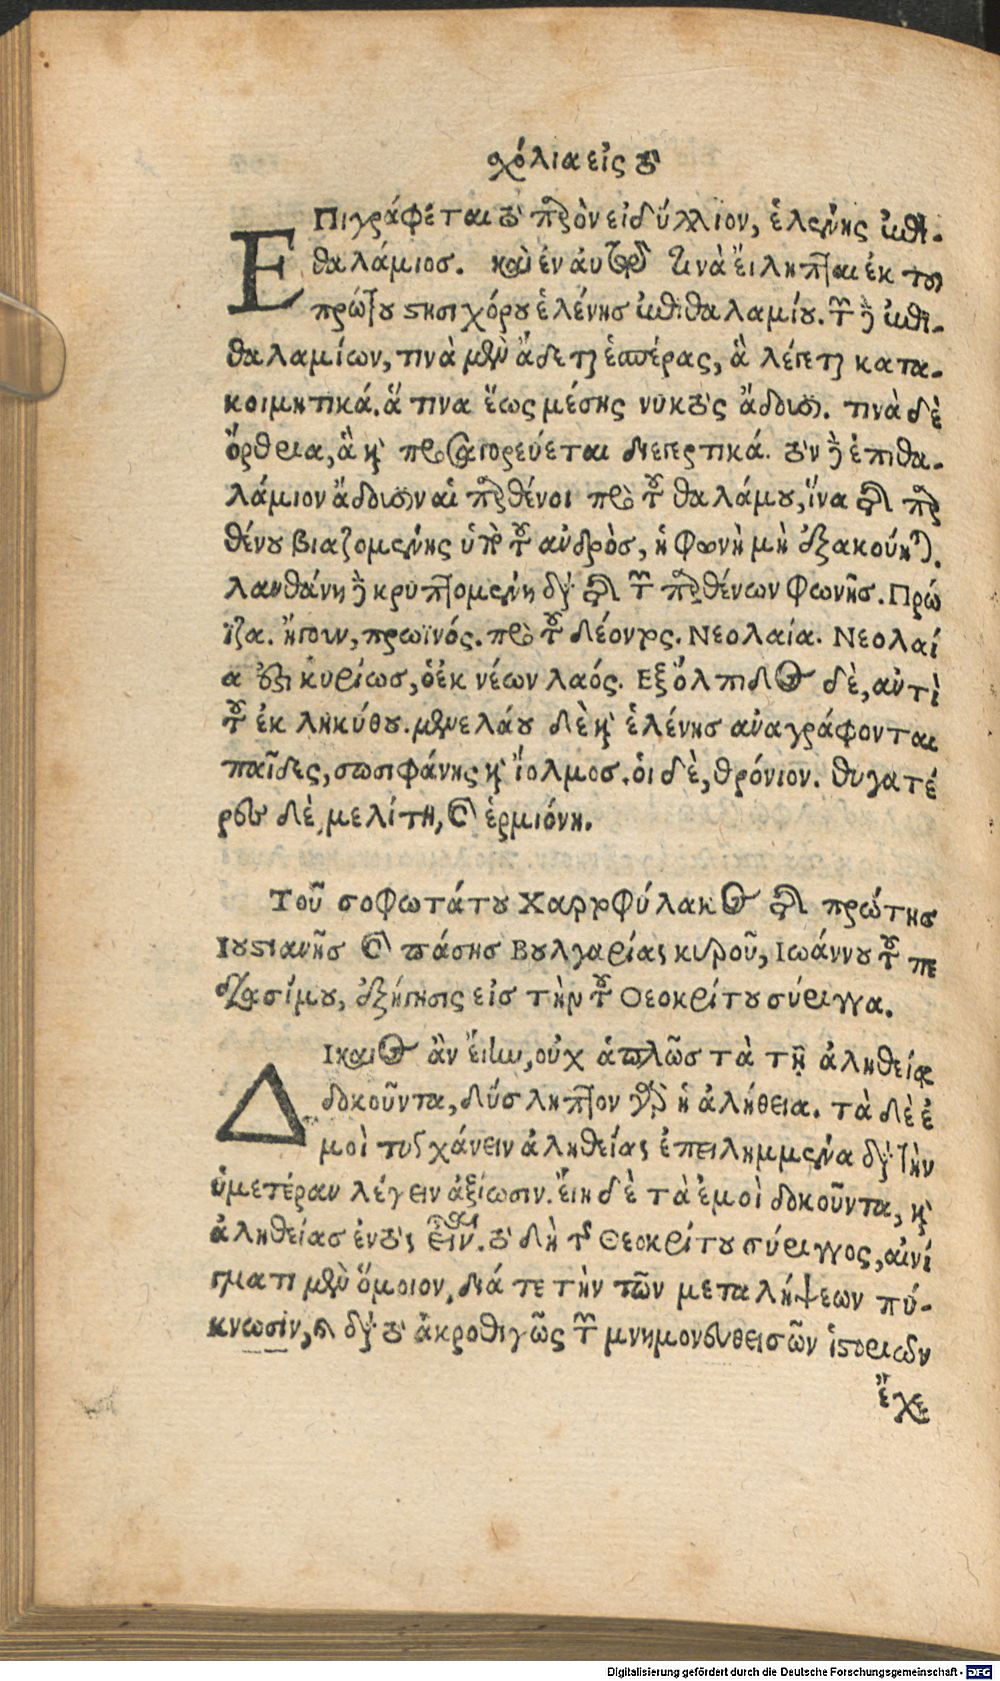 σχόλια εἰς τὸ
ΕΠιγράφεται τὸ παρὸν εἰδύλλιον, ἑλένης ἐπι-
θαλάμιος. καὶ ἐν αὐτῷ τινὰ εἴληπται ἐκ τοῦ
πρώτου στησιχόρου ἑλένης ἐπιθαλαμίου. τῶν δὲ ἐπι-
θαλαμίων, τινὰ μὲν ἄδεται ἑσπέρας, ἃ λέγεται κατα-
κοιμητικά. ἅ τινα ἕως μέσης νυκτὸς ἄδουσι. τινὰ δὲ
ὄρθρια, ἃ καὶ προσαγορεύεται διεγερτικά. τὸν δὲ ἐπιθα-
λάμιον ἄδουσιν αἱ παρθένοι πρὸ τοῦ θαλάμου, ἵνα τῆς παρ
θένου βιαζομένης ὑπὸ τοῦ ἀνδρὸς, ἡ φωνὴ μὴ ἐξακούηται.
λανθάνη δὲ κρυπτομένη διὰ τῆς τῶν παρθένων φωνῆς. Πρώ
ϊζα. ἤγουν, πρωϊνός. πρὸ τοῦ δέοντος. Νεολαία. Νεολαί
α ἐστὶ κυρίως, ὁ ἐκ νέων λαός. Εξ ὄλπιδος δὲ, ἀντὶ
τοῦ ἐκ ληκύθου. μενελάου δὲ καὶ ἑλένης ἀναγράφονται
παῖδες, σωσιφάνης καὶ ἴολμος. οἱ δὲ, θρόνιον. θυγατέ
ρες δὲ, μελίτη, καὶ ἑρμιόνη.
Τοῦ σοφωτάτου Χαρτοφύλακος τῆς πρώτης
Ιουστιανῆς καὶ πάσης Βουλγαρίας κυροῦ, Ιωάννου τοῦ πε
διασίμου, ἐξήγησις εἰς τὴν τοῦ Θεοκρίτου σύριγγα.
ΔΙκαιος ἂν εἴην, οὐχ ἁπλῶς τὰ τῇ ἀληθείᾳ
δοκοῦντα, δύσληπτον γὰρ ἡ ἀλήθεια. τὰ δὲ ἐ
μοὶ τυγχάνειν ἀληθείας ἐπειλημμένα διὰ τὴν
ὑμετέραν λέγειν ἀξίωσιν. εἴη δὲ τὰ ἐμοὶ δοκοῦντα, καὶ
ἀληθείας ἐντὸς εἶναι. τὸ δὴ τοῦ Θεοκρίτου σύριγγος, αἰνί
γματι μὲν ὅμοιον, διά τε τὴν τῶν μεταλήψεων πύ-
κνωσιν, καὶ διὰ τὸ ἀκροθιγῶς τῶν μνημονευθεισῶν ἱστοριῶν
ἔχε
Digitalisierung gefördert durch die Deutsche Forschungsgemeinschaft - DFG